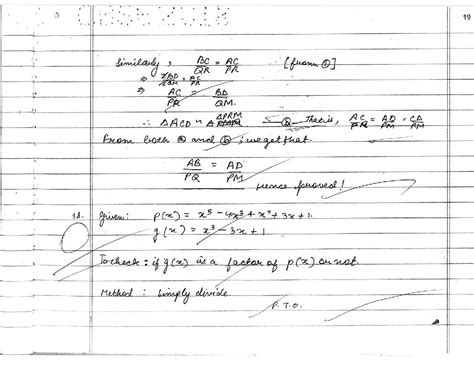 19
Similarly, BC/QR = AC/PR [from ①]
⇒ 2BD/2QM = AC/PR
⇒ AC/PR = BD/QM
∴ ΔACD ~ ΔPRM ⑥ That is, AC/PR = AD/PM = CD/RM
From both ⓐ and ⓑ, we get that.
AB/PQ = AD/PM
Hence proved!
18. Given: p(x) = x⁵ - 4x³ + x² + 3x + 1.
g(x) = x³ - 3x + 1
To check: if g(x) is a factor of p(x) or not.
Method: Simply divide.
P.T.O.